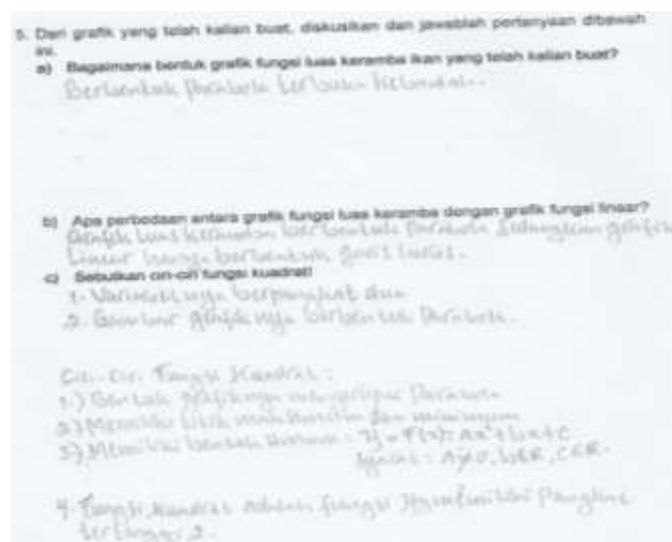 5. Dari grafik yang telah kalian buat, diskusikan dan jawablah pertanyaan dibawah
ini.
a) Bagaimana bentuk grafik fungsi luas keramba ikan yang telah kalian buat?
Berbentuk Parabola terbuka kebawah.
b) Apa perbedaan antara grafik fungsi luas keramba dengan grafik fungsi linear?
Grafik luas keramba berbentuk Parabola sedangkan grafik
Linear hanya berbentuk garis lurus.
c) Sebutkan ciri-ciri fungsi kuadrat!
1. Variabelnya berpangkat dua
2. Gambar grafiknya berbentuk Parabola.
Ciri-Ciri Fungsi Kuadrat :
1.) Bentuk grafiknya menyerupai Parabola
2.) Memiliki titik maksimum dan minimum
3.) Memiliki bentuk umum : y = F(x) = Ax²+bx+c
Syarat : A≠0, b∈R, C∈R.
4. Fungsi kuadrat adalah fungsi yg memiliki Pangkat
tertinggi 2.